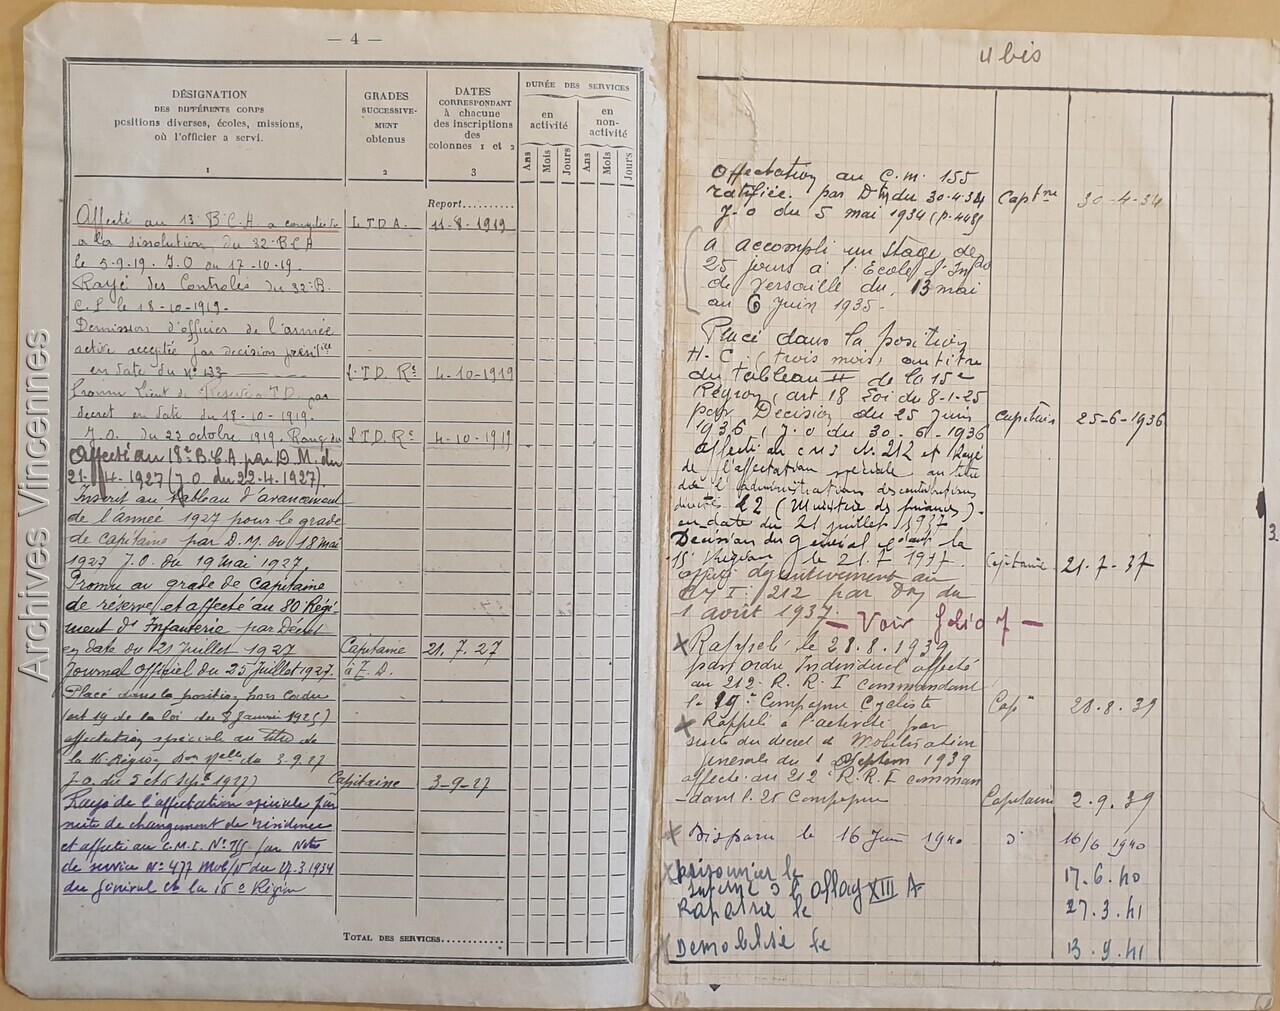 — 4 —
DÉSIGNATION
DES DIFFÉRENTS CORPS
positions diverses, écoles, missions,
où l'officier a servi.
1
GRADES
SUCCESSIVE-
MENT
obtenus
2
DATES
CORRESPONDANT
à chacune
des inscriptions
des
colonnes 1 et 2
3
DURÉE DES SERVICES
en
activité
en
non-
activité
Ans
Mois
Jours
Ans
Mois
Jours
Report..........
Affecté au 13 B.C.A a compter L.T.D.A. 11-8-1919
a la dissolution du 32 B.C.A
le 5-9-19. J.O du 17-10-19.
Rayé des Controles du 32 B.
le 18-10-1919.
Demission d'officier de l'armée
active acceptée par decision
en date du N° 133 L.T.D. Re 4-10-1919
Lieut de Reserve T.D. par
decret en date du 18-10-1919.
J.O. du 22 octobre 1919. Rang du L.T.D. Re 4-10-1919
Affecté au 18e B.C.A. par D.M. du
21-4-1927 (J.O. du 22.4.1927).
Inscrit au tableau d'avancement
de l'année 1927 pour le grade
de capitaine par D.M. du 18 mai
1927 J.O. du 19 mai 1927
Promu au grade de Capitaine
de réserve et affecté au 80 Régi
ment d'Infanterie par Décret
en date du 21 Juillet 1927 Capitaine 21.7.27
Journal Officiel du 25 Juillet 1927. à T.D.
Placé dans la position hors cadre
(art 19 de la loi du 8 Janvier 1925)
affectation spéciale au titre de
la 16 Région du 3-9-27
J.O. du 5 et 6 Sept 1927) Capitaine 3-9-27
Rayé de l'affectation spéciale par
suite de changement de résidence
et affecté au C.M.I. N° 155 par Note
de service N° 477 Mob/ du 17.3.1934
du Général Ct la 16e Région
TOTAL DES SERVICES............
4 bis
Affectation au C.M. 155
ratifiée par D du 30.4.34 Captne 30-4-34
J.O du 5 mai 1934 (p.448)
a accompli un stage de
25 jours à l'Ecole d'Inf
de Versaille du 13 mai
au 6 Juin 1935.
Placé dans la position
H.C. (trois mois) au titre
du tableau II de la 15e
Région, art 18 Loi du 8-1-25
par Décision du 25 Juin Capitaine 25-6-1936
1936, J.O du 30-6-1936
affecté au N. 212 et Rayé
de l'affectation spéciale au titre
de l'administration des contributions
directes (Ministère des finances).
en date du 21 juillet 1937
Decision du général la
15 Region le 21.7.1937. Capitaine 21.7.37
212 par du
1 août 1937 — Voir folio 7 —
Rappelé le 28.8.1939
par ordre Individuel affecté
au 212 R.R.I commandant
la 19e Compagnie Cycliste Cape 28.8.39
Rappelé à l'activité par
suite du decret de Mobilisation
générale du 1 Septem 1939
affecté au 212 R.R.I comman
-dant la 25 Compagnie Capitaine 2.9.39
Disparu le 16 Juin 1940 d° 16/6 1940
prisonnier le 17.6.40
Interné à l'Oflag XIII A
Rapatrié le 27.3.41
Démobilisé le 13.9.41
3
Archives Vincennes